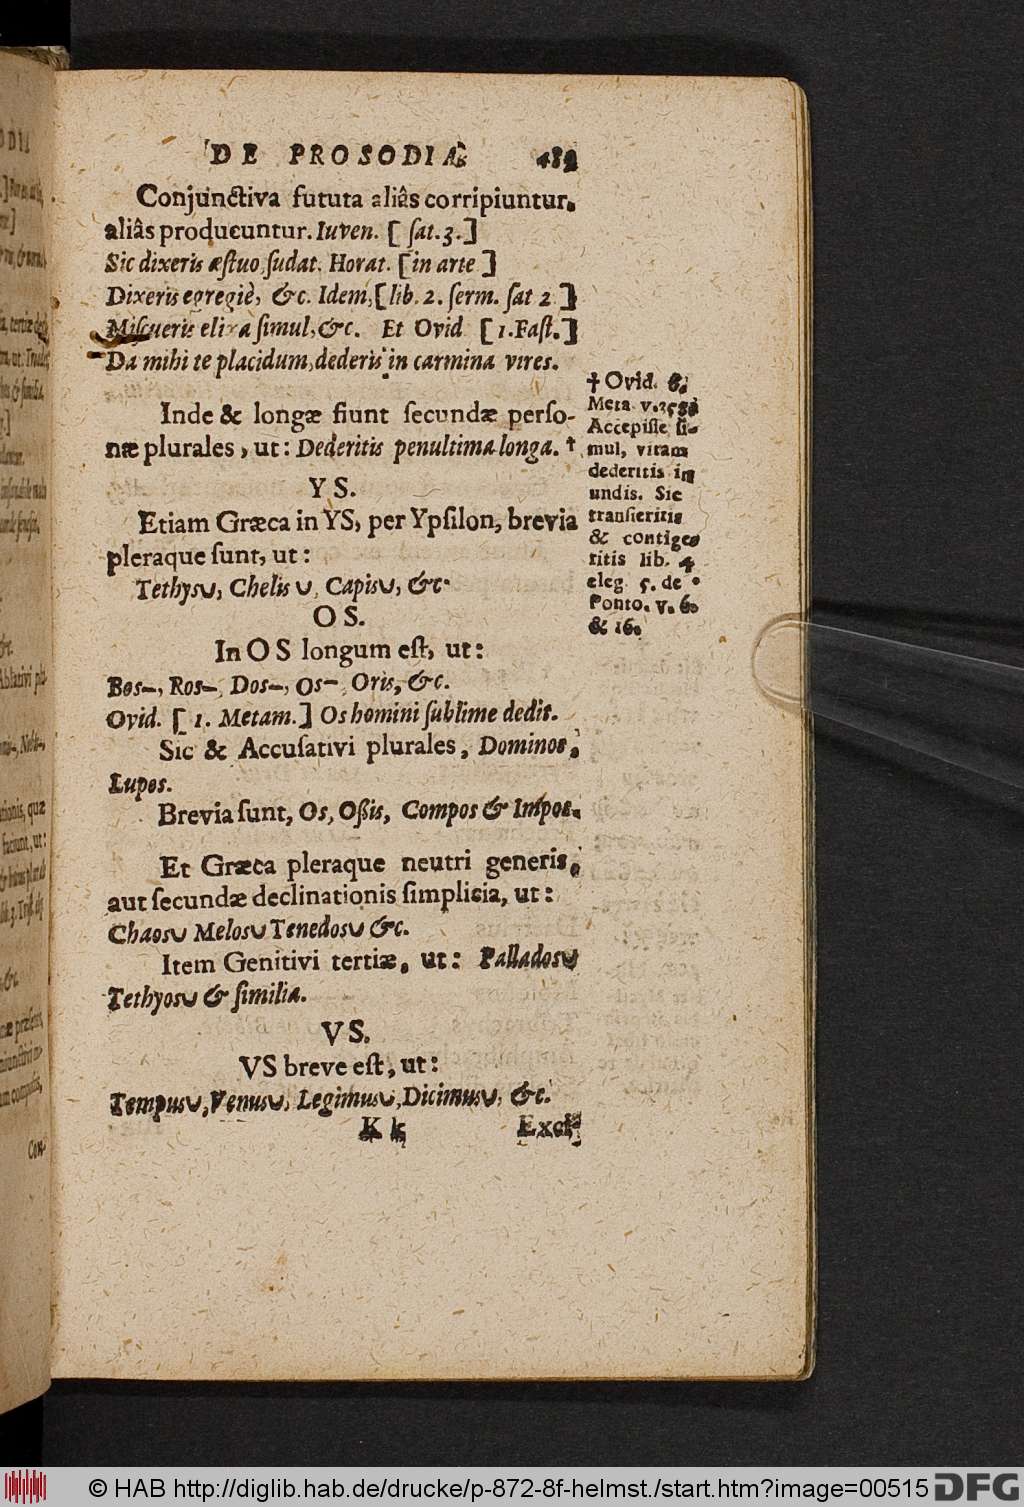 DE PROSODIA. 489
Conjunctiva fututa aliâs corripiuntur,
aliâs producuntur. Iuven. [ ſat. 3. ]
Sic dixeris æſtuo, ſudat. Horat. [in arte ]
Dixeris egregiè, &c. Idem, [lib. 2. ſerm. ſat 2 ]
Miſcueris elixa ſimul, &c. Et Ovid [1. Faſt.]
Da mihi te placidum, dederis in carmina vires.
Inde & longæ fiunt ſecundæ perſo-
næ plurales, ut: Dederitis penultima longa. †
Y S.
Etiam Græca in YS, per Ypſilon, brevia
pleraque ſunt, ut:
Tethys∪, Chelis ∪, Capis∪, &c.
O S.
In O S longum eſt, ut:
Bos–, Ros–, Dos–, Os– Oris, &c.
Ovid. [ 1. Metam. ] Os homini ſublime dedit.
Sic & Accuſativi plurales, Dominos,
Lupos.
Brevia ſunt, Os, Oſsis, Compos & Impos.
Et Græca pleraque neutri generis,
aut ſecundæ declinationis ſimplicia, ut:
Chaos∪ Melos∪ Tenedos∪ &c.
Item Genitivi tertiæ, ut: Pallados∪
Tethyos∪ & ſimilia.
V S.
VS breve eſt, ut:
Tempus∪, Venus∪, Legimus∪, Dicimus∪, &c.
K k Exci-
† Ovid. 6.
Meta v.
Accepiſſe ſi-
mul, vitam
dederitis in
undis. Sic
tranſieritis
& contige-
ritis lib. 4
eleg. 5. de
Ponto. v. 6.
& 16.
© HAB http://diglib.hab.de/drucke/p-872-8f-helmst./start.htm?image=00515 DFG